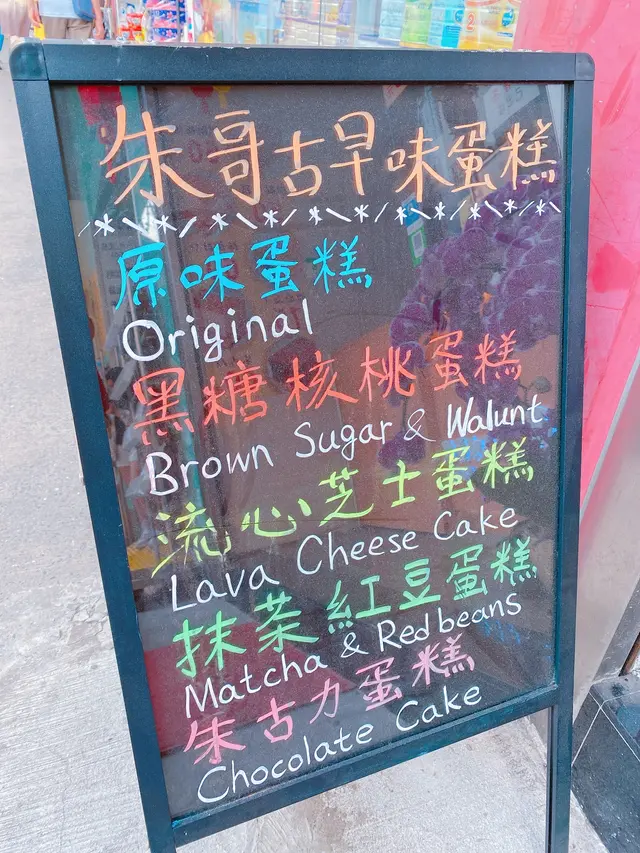 朱哥古早味蛋糕
原味蛋糕
Original
黑糖核桃蛋糕
Brown Sugar & Walunt
流心芝士蛋糕
Lava Cheese Cake
抹茶紅豆蛋糕
Matcha & Red beans
朱古力蛋糕
Chocolate Cake